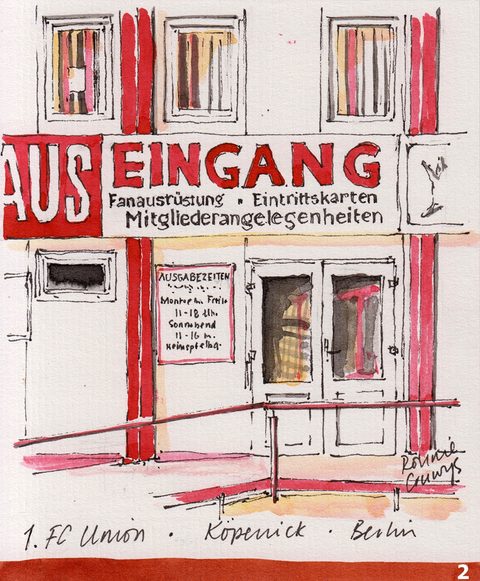 AUS EINGANG
Fanausrüstung • Eintrittskarten
Mitgliederangelegenheiten
AUSGABEZEITEN
11-18 Uhr
Sonnabend
11-16
Ronnie
Cruwys
1. FC Union • Köpenick • Berlin
2